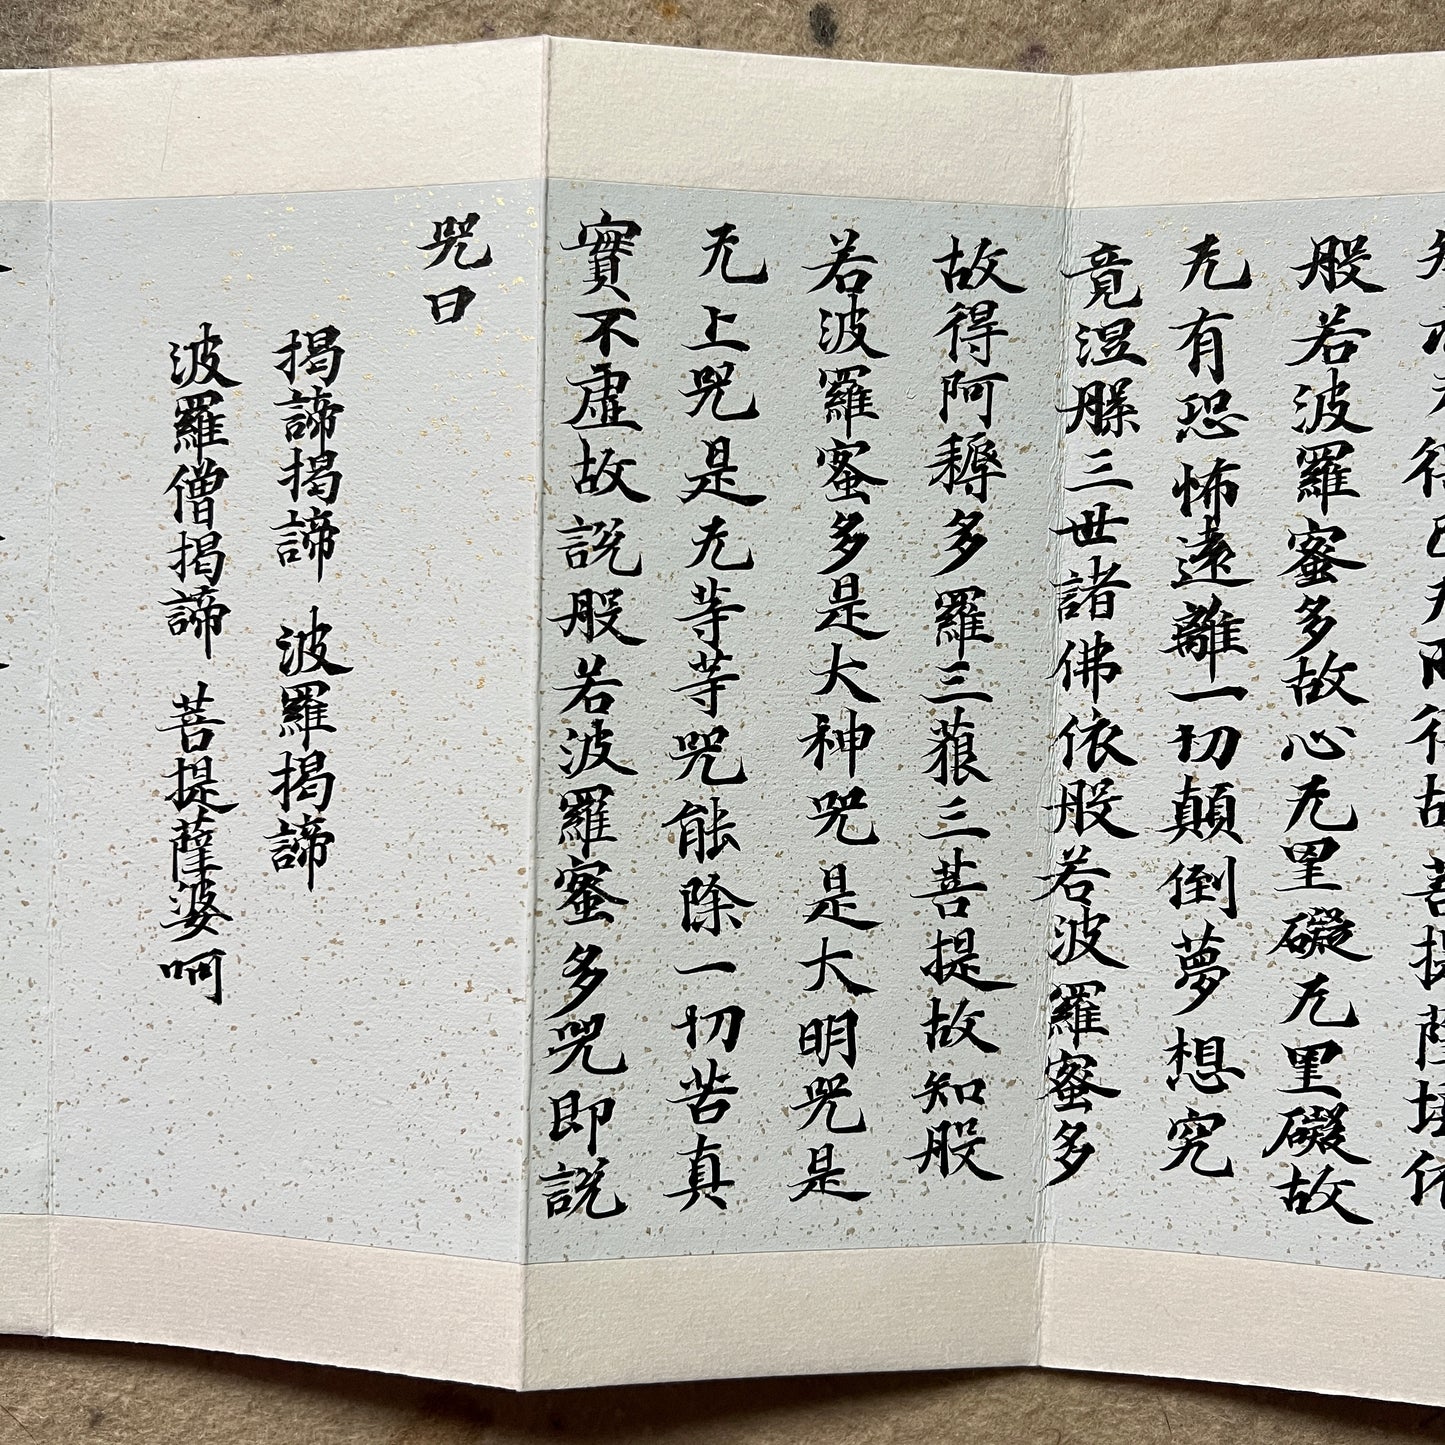 得故菩提薩埵依
般若波羅蜜多故心无罣礙无罣礙故
无有恐怖遠離一切顛倒夢想究
竟涅槃三世諸佛依般若波羅蜜多
故得阿耨多羅三藐三菩提故知般
若波羅蜜多是大神咒是大明咒是
无上咒是无等等咒能除一切苦真
實不虛故說般若波羅蜜多咒即說
咒曰
揭諦揭諦 波羅揭諦
波羅僧揭諦 菩提薩婆呵